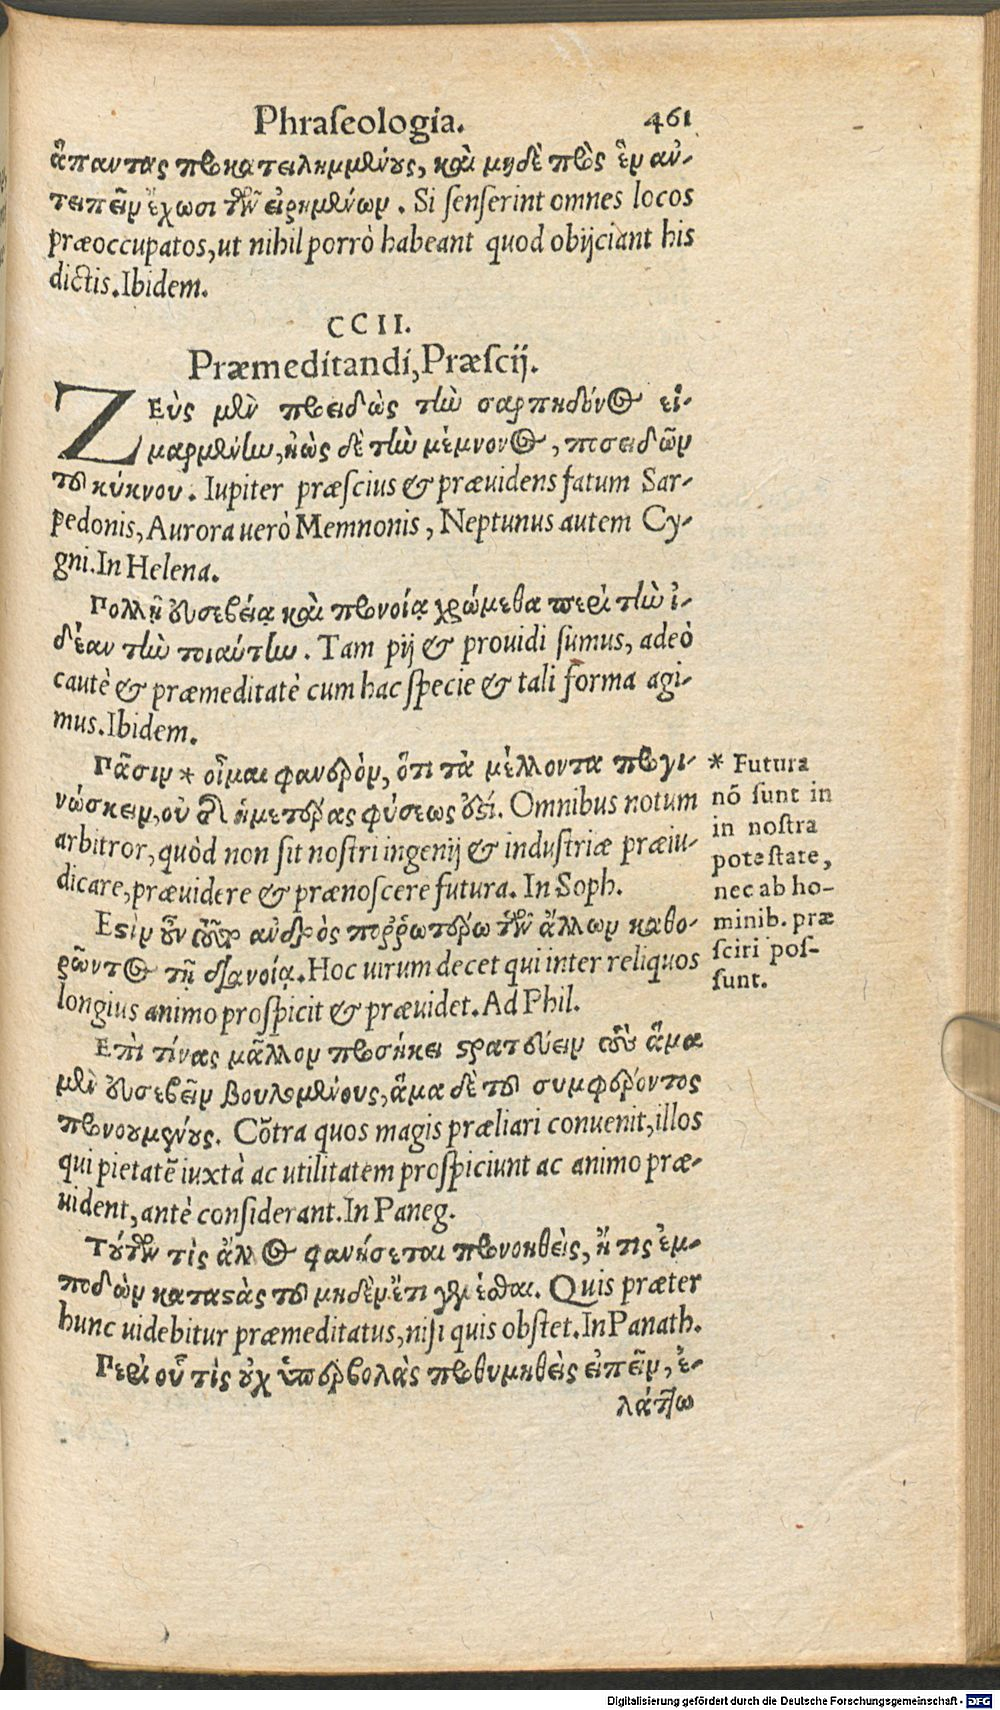 Phraſeologia. 461
ἅπαντας προκατειλημμένους, καὶ μηδὲ πρὸς ἓν ἀν-
τειπεῖν ἔχωσι τῶν εἰρημένων. Si ſenſerint omnes locos
præoccupatos, ut nihil porrò habeant quod obijciant his
dictis. Ibidem.
CCII.
Præmeditandi, Præſcij.
ΖΕὺς μὲν προειδὼς τὴν σαρπηδόνος εἱ-
μαρμένην, ἠὼς δὲ τὴν μέμνονος, ποσειδῶν
τοῦ κύκνου. Iupiter præſcius & præuidens fatum Sar-
pedonis, Aurora uerò Memnonis, Neptunus autem Cy-
gni. In Helena.
Πολλῇ εὐσεβείᾳ καὶ προνοίᾳ χρώμεθα περὶ τὴν ἰ-
δέαν τὴν τοιαύτην. Tam pij & prouidi ſumus, adeò
cautè & præmeditatè cum hac ſpecie & tali forma agi-
mus. Ibidem.
Πᾶσιν * οἶμαι φανερὸν, ὅτι τὰ μέλλοντα προγι-
νώσκειν, οὐ τῆς ἡμετέρας φύσεως ἐστί. Omnibus notum
arbitror, quòd non ſit noſtri ingenij & induſtriæ præiu-
dicare, præuidere & prænoſcere futura. In Soph.
* Futura
nõ ſunt in
in noſtra
poteſtate,
nec ab ho-
minib. præ
ſciri poſ-
ſunt.
Εστὶν οὖν ἀνδρὸς πορρωτέρω τῶν ἄλλων καθο-
ρῶντος τῇ διανοίᾳ. Hoc uirum decet qui inter reliquos
longius animo proſpicit & præuidet. Ad Phil.
Επὶ τίνας μᾶλλον προσήκει στρατεύειν τοὺς ἅμα
μὲν εὐσεβεῖν βουλομένους, ἅμα δὲ τοῦ συμφέροντος
προνουμένους. Cõtra quos magis præliari conuenit, illos
qui pietatẽ iuxtà ac utilitatem proſpiciunt ac animo præ-
uident, antè conſiderant. In Paneg.
Τούτων τὶς ἄλλος φανήσεται προνοηθεὶς, ἤ τις ἐμ-
ποδὼν καταστὰς τοῦ μηδὲν ἔτι γενέσθαι. Quis præter
hunc uidebitur præmeditatus, niſi quis obſtet. In Panath.
Περὶ οὗ τὶς οὐχ ὑπερβολὰς προθυμηθεὶς εἰπεῖν, ἐ-
λάττω
Digitalisierung gefördert durch die Deutsche Forschungsgemeinschaft - DFG